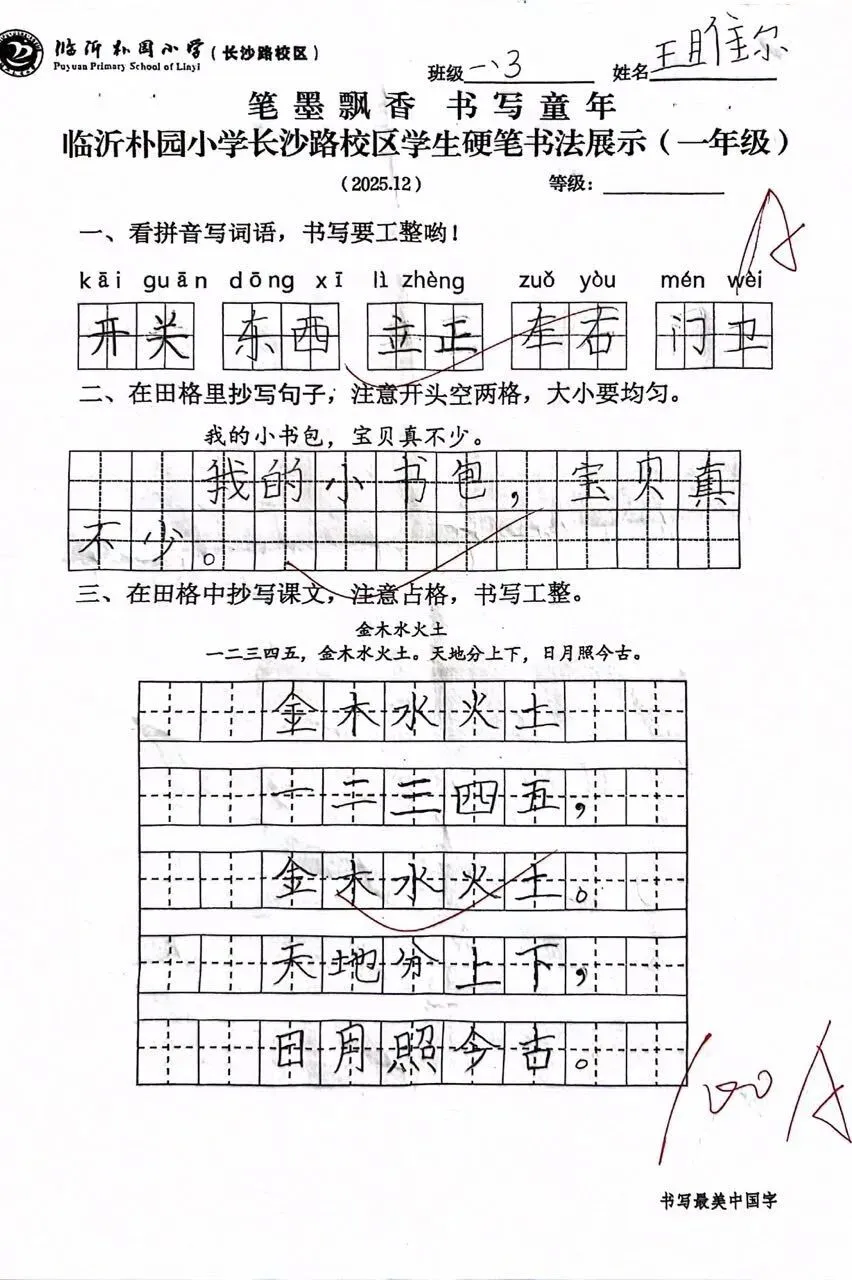 临沂朴园小学(长沙路校区)
Puyuan Primary School of Linyi
班级 一、3 姓名
笔墨飘香 书写童年
临沂朴园小学长沙路校区学生硬笔书法展示(一年级)
(2025.12) 等级: A
一、看拼音写词语,书写要工整哟!
kāi guān dōng xī lì zhèng zuǒ yòu mén wèi
开关 东西 立正 左右 门卫
二、在田格里抄写句子,注意开头空两格,大小要均匀。
我的小书包,宝贝真不少。
我的小书包,宝贝真
不少。
三、在田格中抄写课文,注意占格,书写工整。
金木水火土
一二三四五,金木水火土。天地分上下,日月照今古。
金木水火土
一二三四五,
金木水火土。
天地分上下,
日月照今古。
100 A
书写最美中国字